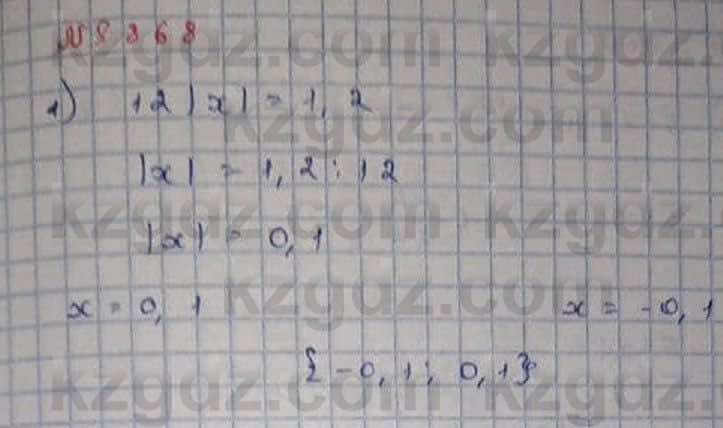 № 868
1) 12|x| = 1,2
|x| = 1,2 : 12
|x| = 0,1
x = 0,1 x = -0,1
{-0,1; 0,1}
kzgdz.com kzgdz.com
kzgdz.com
kzgdz.com kzgdz.com
kzgdz.com
kzgdz.com kzgdz.com